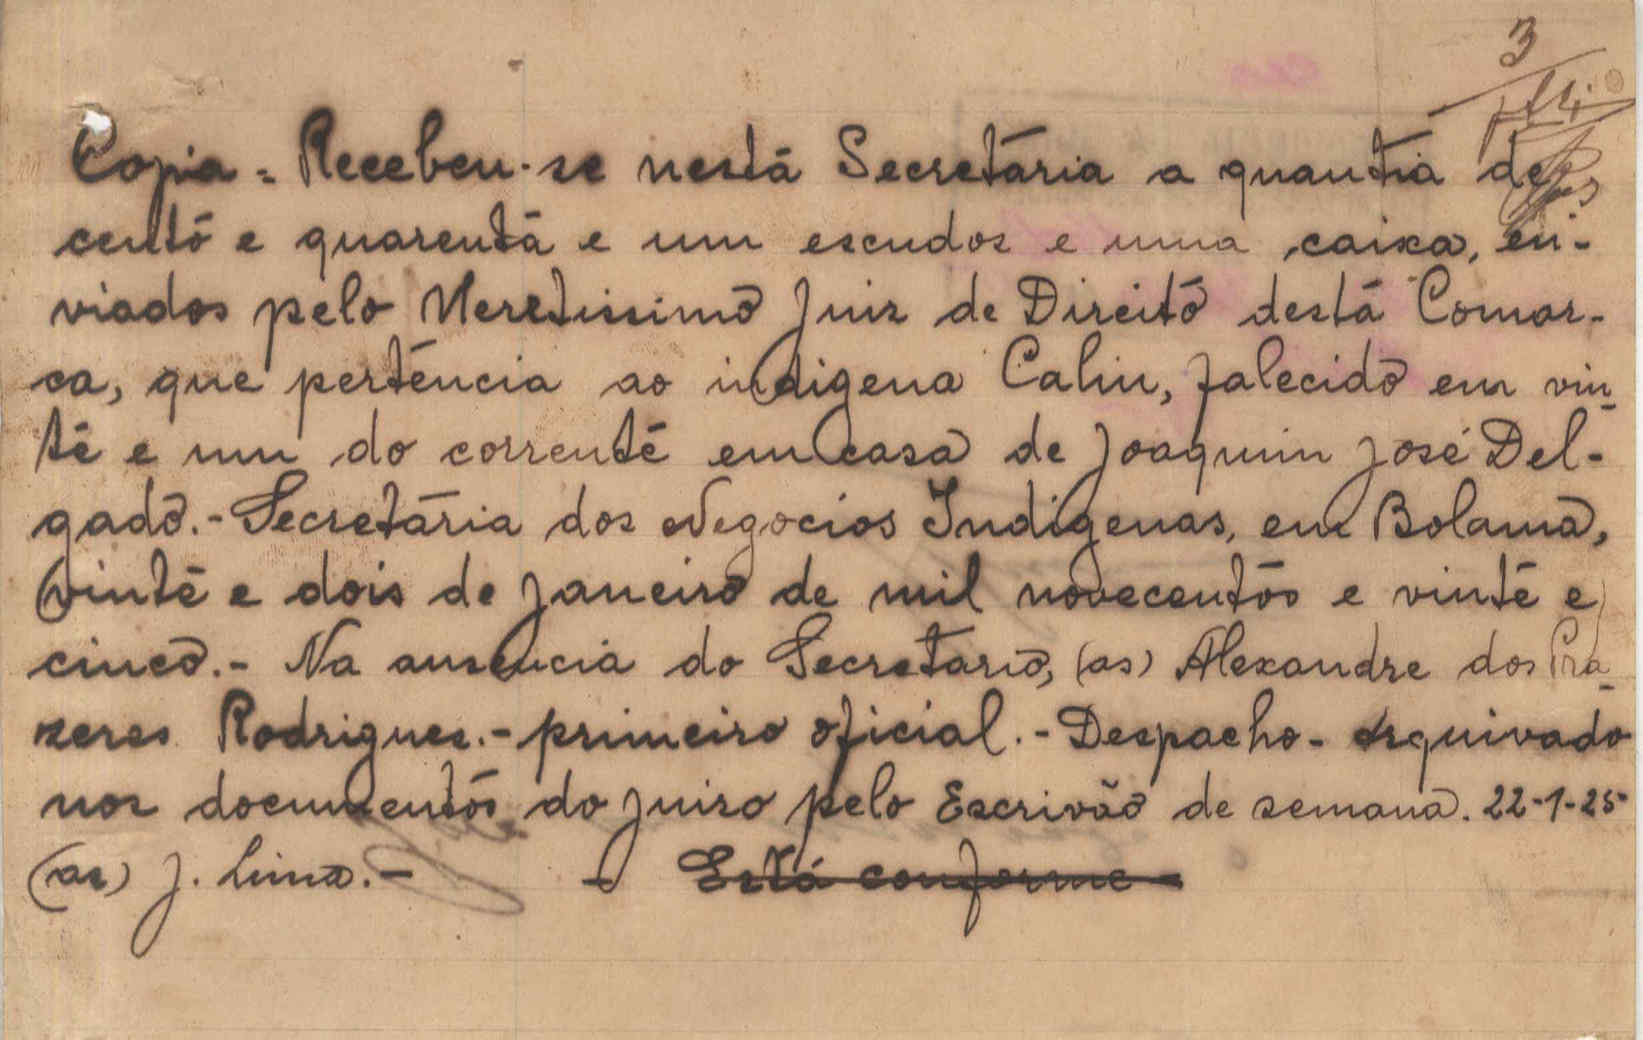 3
Copia = Recebeu-se nesta Secretaria a quantia de
cento e quarenta e um escudos e uma caixa, en-
viados pelo Meretissimo Juiz de Direito desta Comar-
ca, que pertencia ao indigena Caliu, falecido em vin-
te e um do corrente em casa de Joaquim José Del-
gado.- Secretaria dos Negocios Indigenas, em Bolama,
vinte e dois de Janeiro de mil novecentos e vinte e
cinco.- Na ausencia do Secretario, (as) Alexandre dos Pra-
zeres Rodrigues.- primeiro oficial.- Despacho- Arquivado
nos documentos do juizo pelo Escrivão de semana. 22-1-25
(as) J. Lima.- - Está conforme -